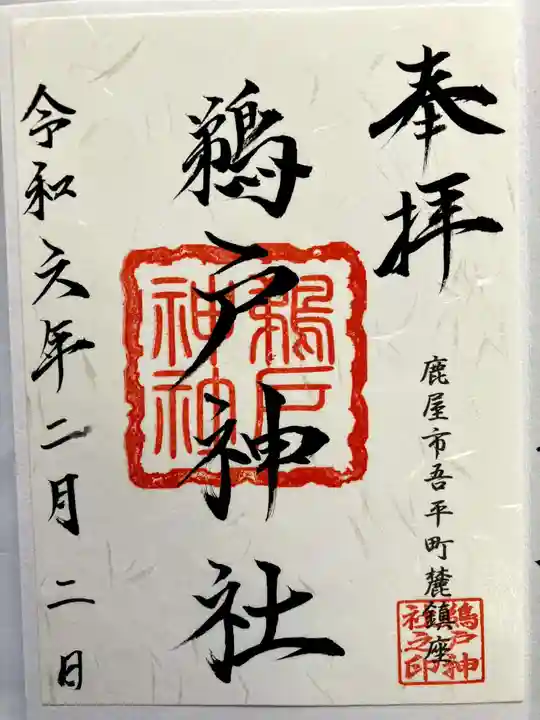 奉拝
鹿屋市吾平町麓鎮座
鵜戸神社之印
鵜戸神社
鵜戸神社
令和六年二月二日